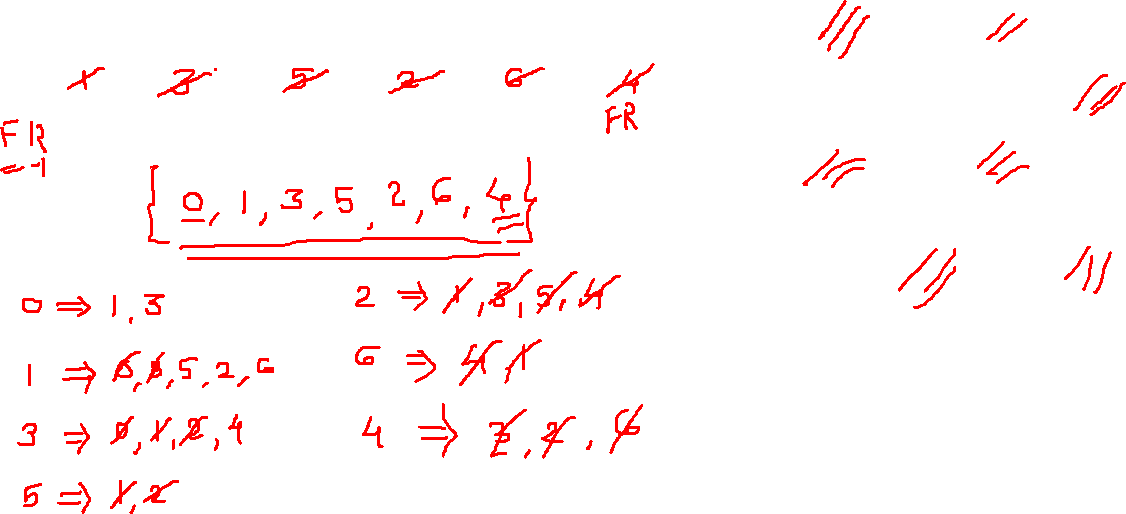 1 3 5 2 6 4
FR
FR
=-1
{0, 1, 3, 5, 2, 6, 4}
0 ⇒ 1, 3
1 ⇒ 0, 3, 5, 2, 6
3 ⇒ 0, 1, 2, 4
5 ⇒ 1, 2
2 ⇒ 1, 3, 5, 4
6 ⇒ 4, 1
4 ⇒ 3, 2, 6